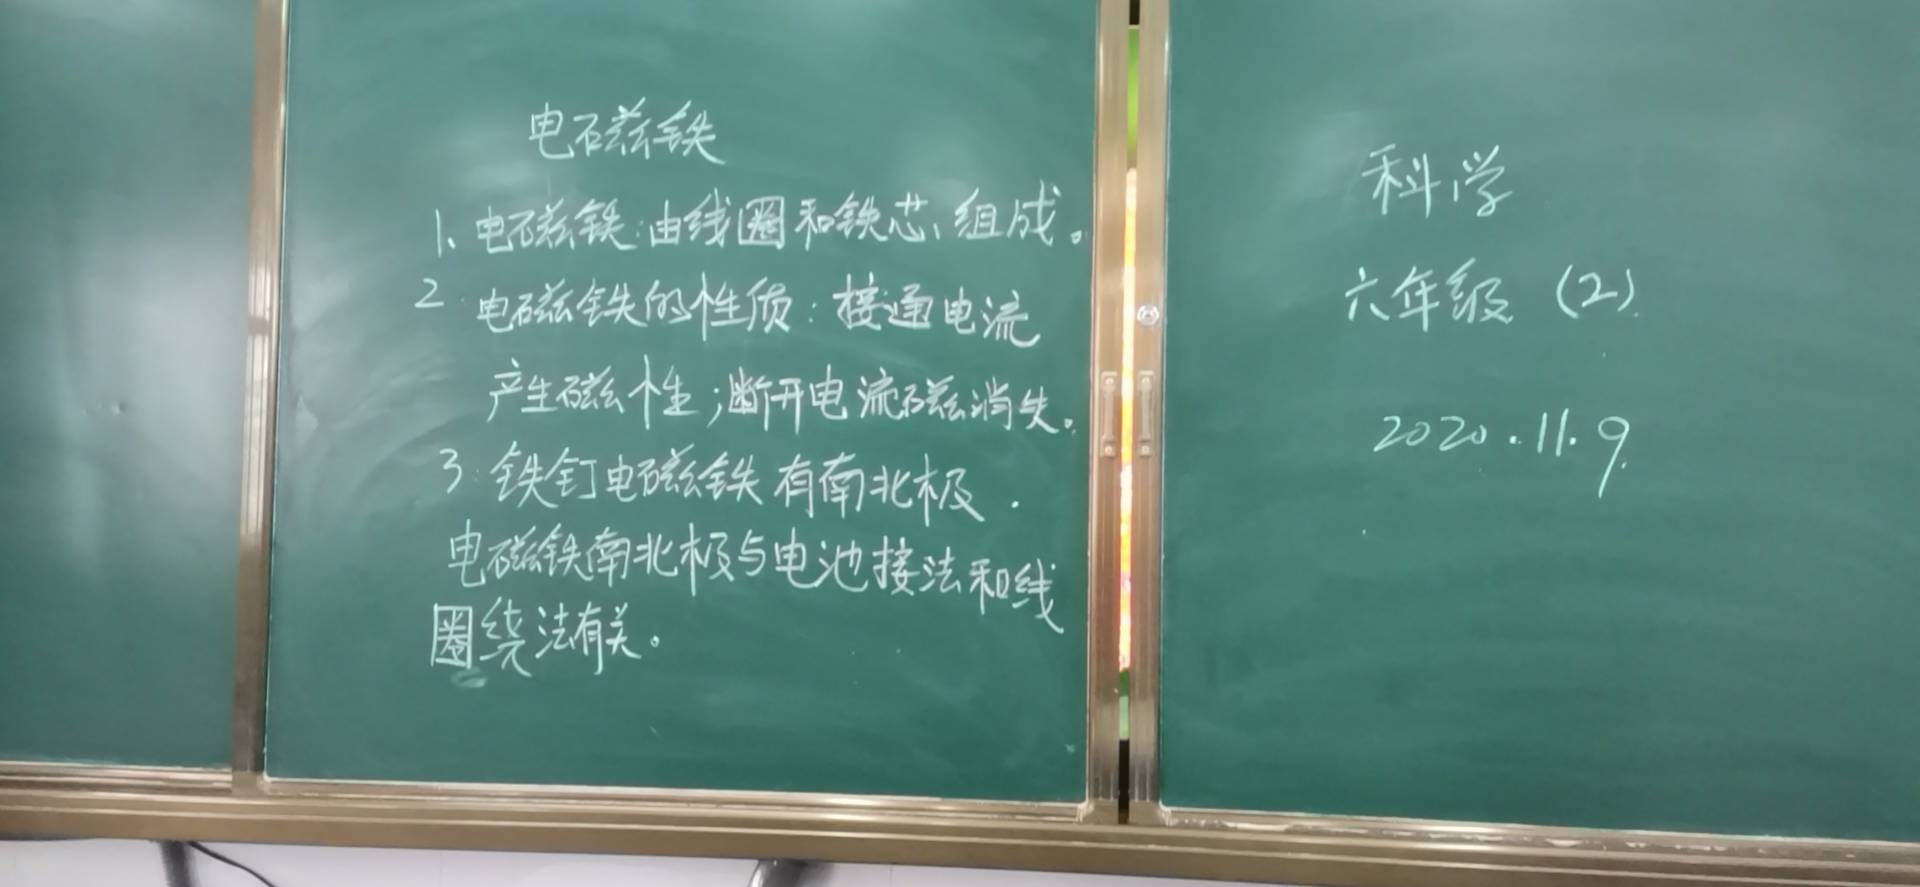 电磁铁
1、电磁铁:由线圈和铁芯、组成。
2.电磁铁的性质:接通电流
产生磁性;断开电流磁消失。
3.铁钉电磁铁有南北极.
电磁铁南北极与电池接法和线
圈绕法有关。
科学
六年级(2).
2020.11.9.